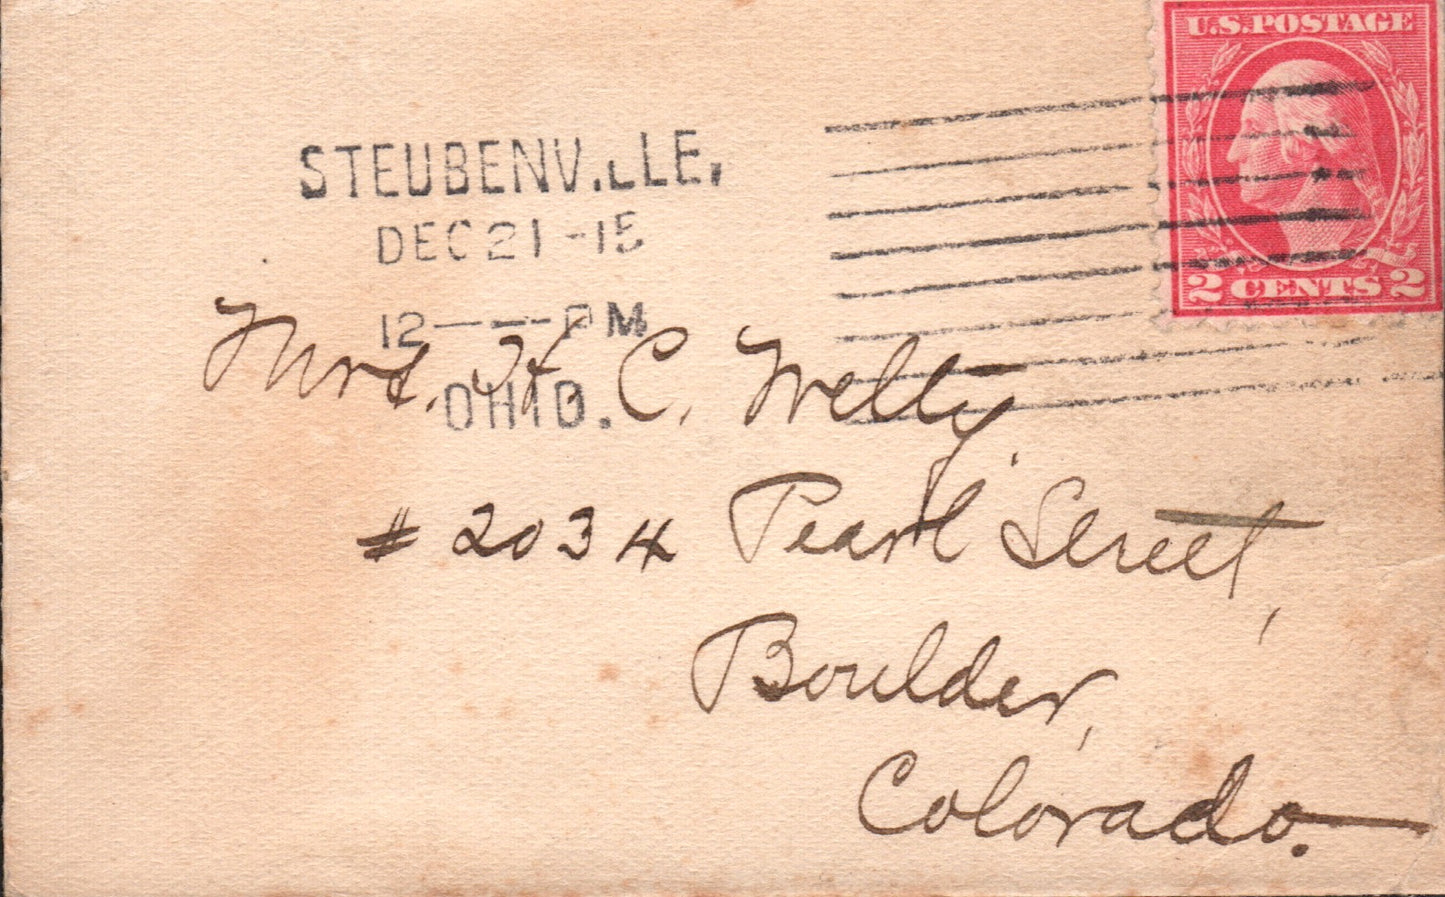 U.S. POSTAGE
2 CENTS 2
STEUBENVILLE,
DEC 21 -15
12 — — PM
OHIO.
Mrs. H. C. Welty
# 2034 Pearl Street,
Boulder,
Colorado.